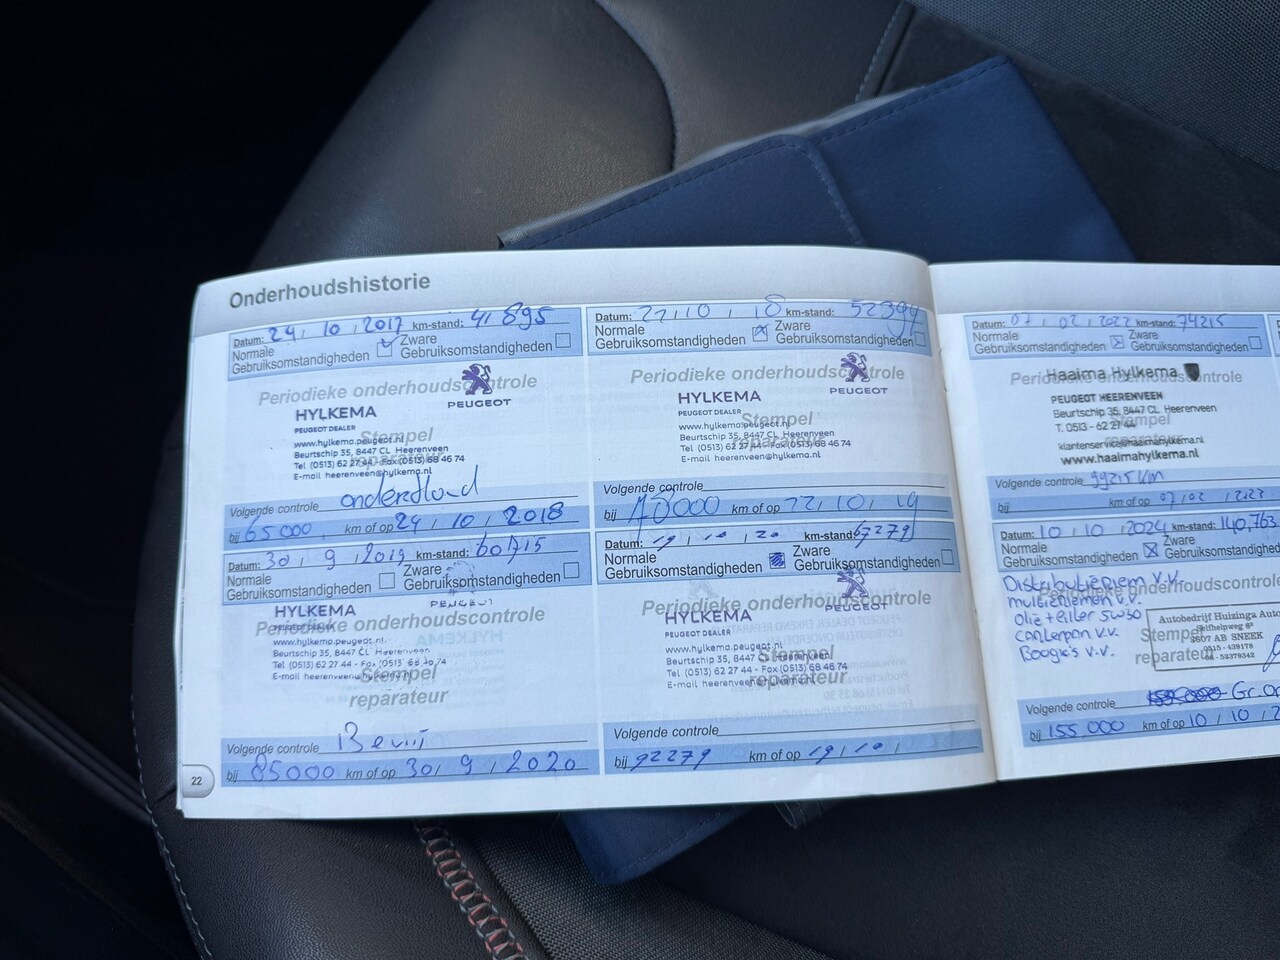 Onderhoudshistorie
Datum: 24, 10, 2017 km-stand: 41 895
Normale Gebruiksomstandigheden
Zware Gebruiksomstandigheden
Periodieke onderhoudscontrole
PEUGEOT
HYLKEMA
PEUGEOT DEALER
www.hylkema.peugeot.nl
Beurtschip 35, 8447 CL Heerenveen
Tel (0513) 62 27 44 - Fax (0513) 68 46 74
E-mail heerenveen@hylkema.nl
Stempel reparateur
Volgende controle onderhoud
bij 65000 km of op 24, 10, 2018
Datum: 30, 9, 2019 km-stand: 60715
Normale Gebruiksomstandigheden
Zware Gebruiksomstandigheden
PEUGEOT
Periodieke onderhoudscontrole
HYLKEMA
PEUGEOT DEALER
www.hylkema.peugeot.nl
Beurtschip 35, 8447 CL Heerenveen
Tel (0513) 62 27 44 - Fax (0513) 68 46 74
E-mail heerenveen@hylkema.nl
Stempel reparateur
Volgende controle
bij 85000 km of op 30, 9, 2020
22
Datum: km-stand:
Normale Gebruiksomstandigheden
Zware Gebruiksomstandigheden
Periodieke onderhoudscontrole
PEUGEOT
HYLKEMA
PEUGEOT DEALER
www.hylkema.peugeot.nl
Beurtschip 35, 8447 CL Heerenveen
Tel (0513) 62 27 44 - Fax (0513) 68 46 74
E-mail heerenveen@hylkema.nl
Stempel reparateur
Volgende controle
bij km of op 22, 10, 19
Datum: 19, 10, 20 km-stand: 67279
Normale Gebruiksomstandigheden
Zware Gebruiksomstandigheden
Periodieke onderhoudscontrole
PEUGEOT
HYLKEMA
PEUGEOT DEALER
www.hylkema.peugeot.nl
Beurtschip 35, 8447 CL Heerenveen
Tel (0513) 62 27 44 - Fax (0513) 68 46 74
E-mail heerenveen@hylkema.nl
Stempel reparateur
Volgende controle
bij 92279 km of op 19, 10,
Datum: 07, 02, 2022 km-stand: 74215
Normale Gebruiksomstandigheden
Zware Gebruiksomstandigheden
Periodieke onderhoudscontrole
Haaima Hylkema
PEUGEOT HEERENVEEN
Beurtschip 35, 8447 CL Heerenveen
T. 0513 - 62 27 44
klantenservice@haaimahylkema.nl
www.haaimahylkema.nl
Stempel reparateur
Volgende controle 99215 km
bij km of op 07, 02,
Datum: 10, 10, 2024 km-stand: 140,763
Normale Gebruiksomstandigheden
Zware Gebruiksomstandigheden
Periodieke onderhoudscontrole
Distributieriem v.v.
multieriemen v.v.
olie + filter 5w30
carterpan v.v.
Bougie's v.v.
Autobedrijf Huizinga
8607 AB SNEEK
0515-439178
Stempel reparateur
Volgende controle
bij 155 000 km of op 10, 10,